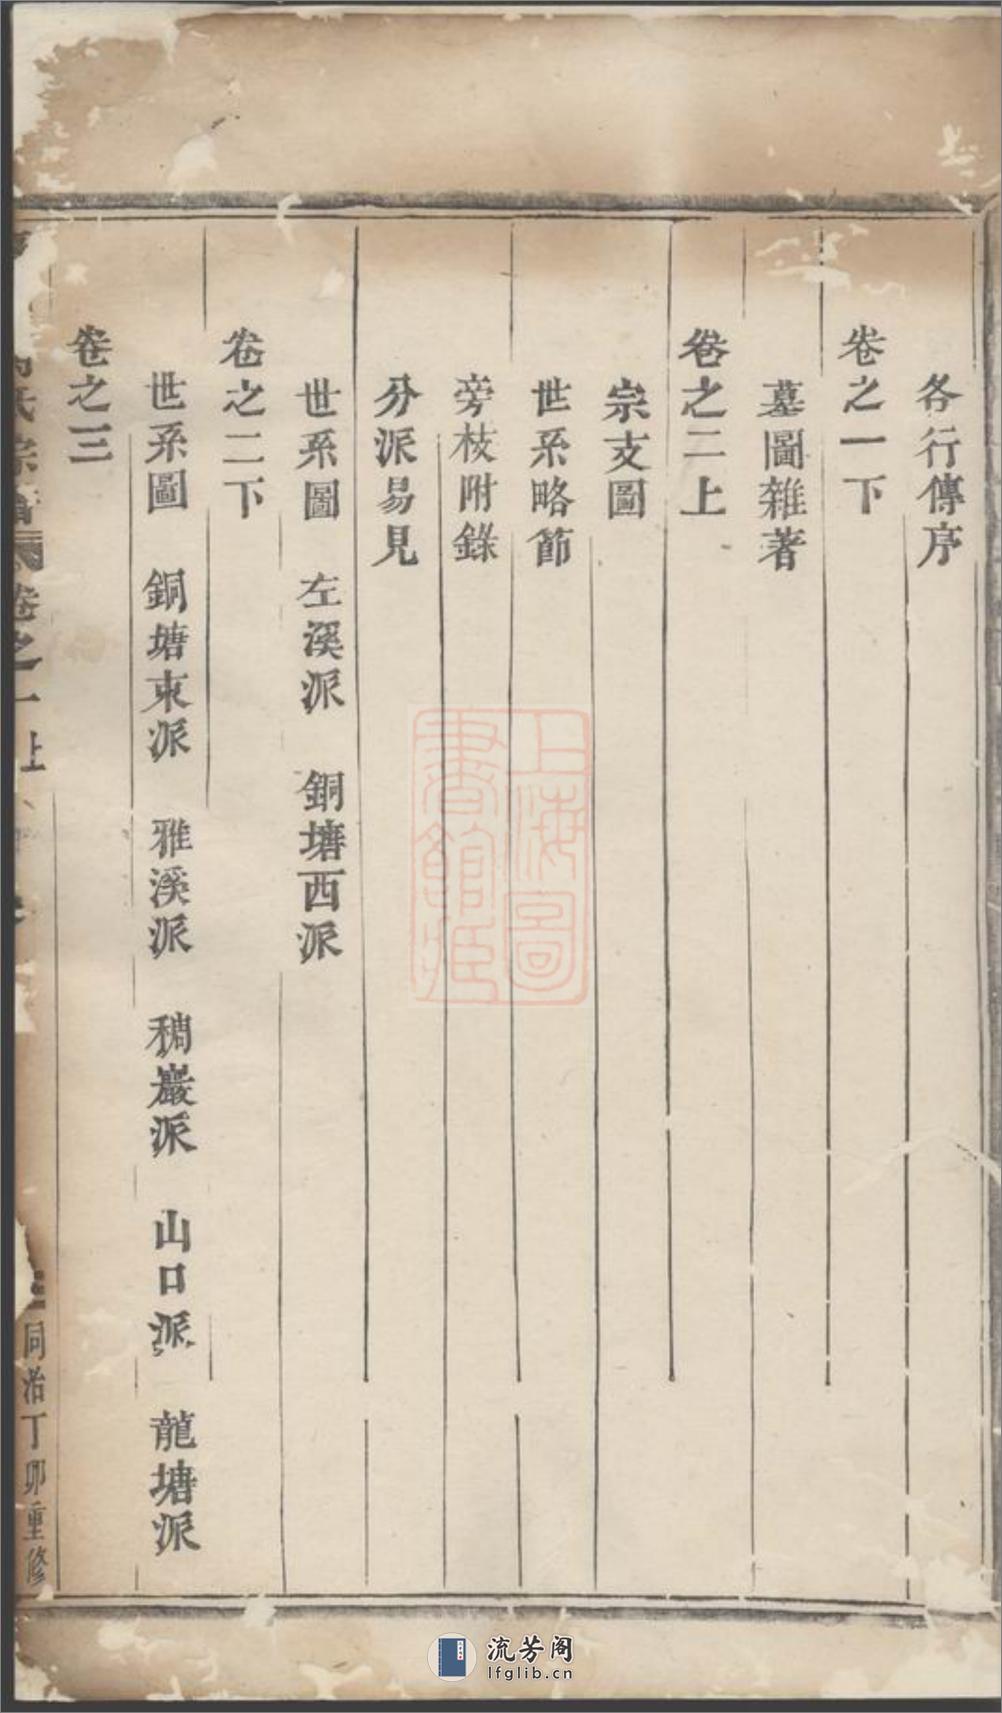 各行傳序
卷之一下
墓圖雜著
卷之二上
宗支圖
世系略節
旁枝附錄
分派易見
世系圖　左溪派　銅塘西派
卷之二下
世系圖　銅塘東派　雅溪派　稠巖派　山口派　龍塘派
卷之三
氏宗譜　卷之一上
同治丁卯重修
上海圖書館藏
流芳阁
lfglib.cn